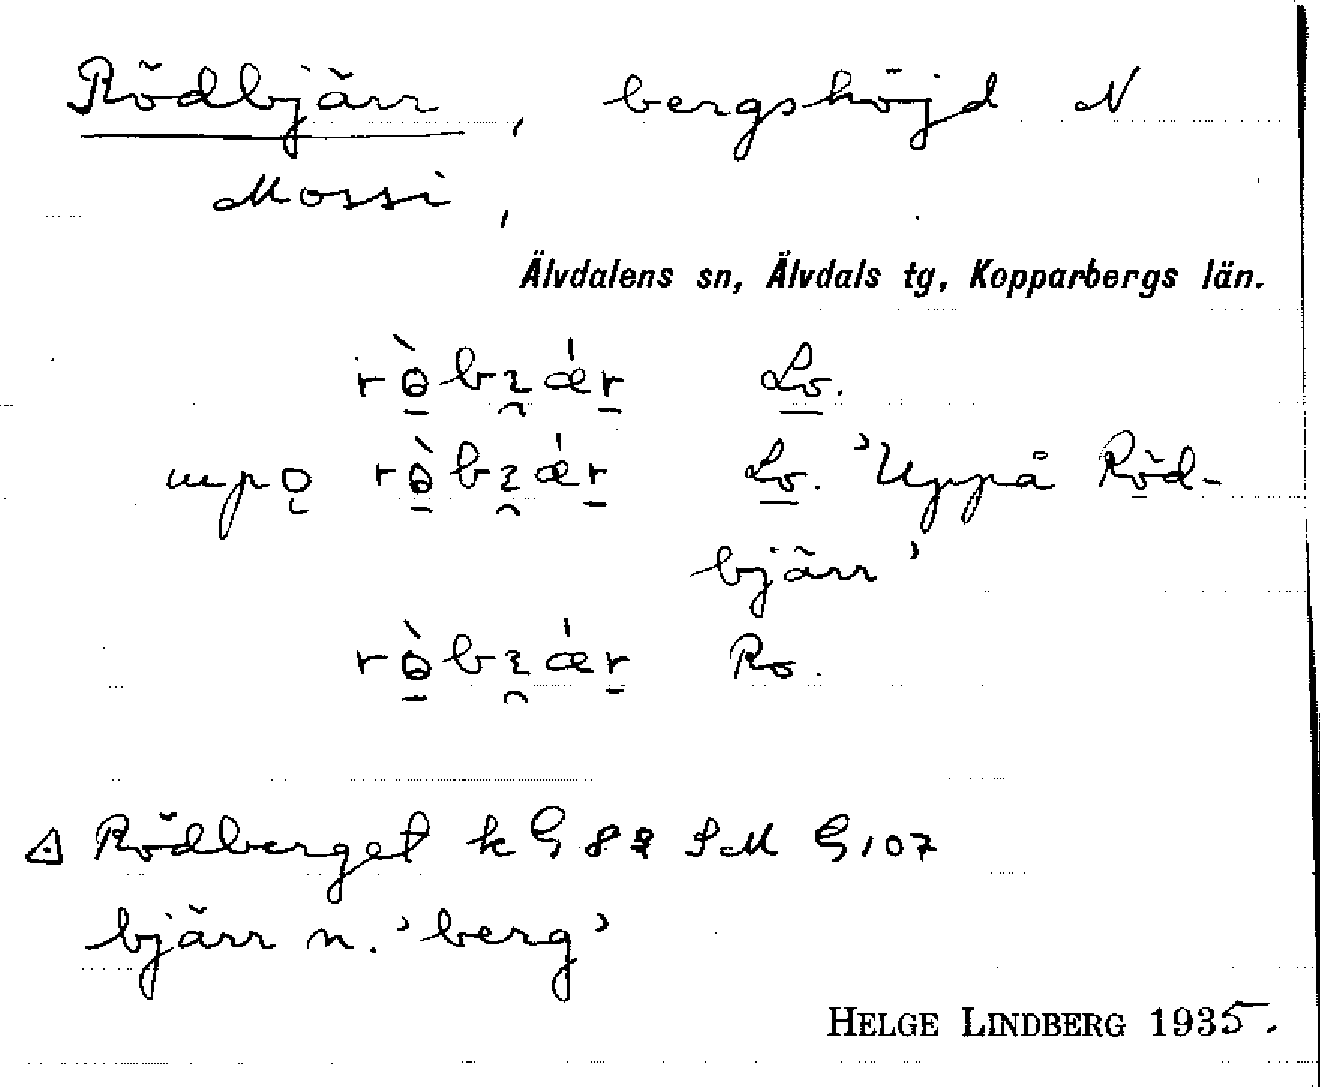 Rödbjärr, bergshöjd N
Mossi,
Älvdalens sn, Älvdals tg, Kopparbergs län.
rö̀bɀǽr Lo.
upo̜ rö̀bɀǽr Lo. 'Uppå Röd-
bjärr'
rö̀bɀǽr Ro.
Rödberget k G 82 SM G 107
bjärr n. 'berg'
HELGE LINDBERG 1935.